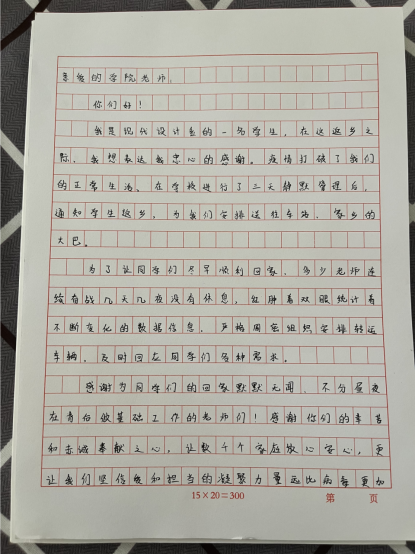 亲爱的学院老师：
你们好！
我是现代设计系的一名学生，在这返乡之
际，我想表达我衷心的感谢。疫情打破了我们
的正常生活、在学校进行了三天静默管理后，
通知学生返乡，为我们安排送往车站、家乡的
大巴。
为了让同学们尽早顺利回家、多少老师连
续奋战几天几夜没有休息，红肿着双眼统计着
不断变化的数据信息，严格周密组织安排转运
车辆，及时回应同学们各种需求。
感谢为同学们的回家默默无闻、不分昼夜
在背后做基础工作的老师们！感谢你们的辛苦
和赤诚奉献之心，让数千个家庭放心安心，更
让我们坚信爱和担当的凝聚力量远比病毒更加
15×20=300 第 页